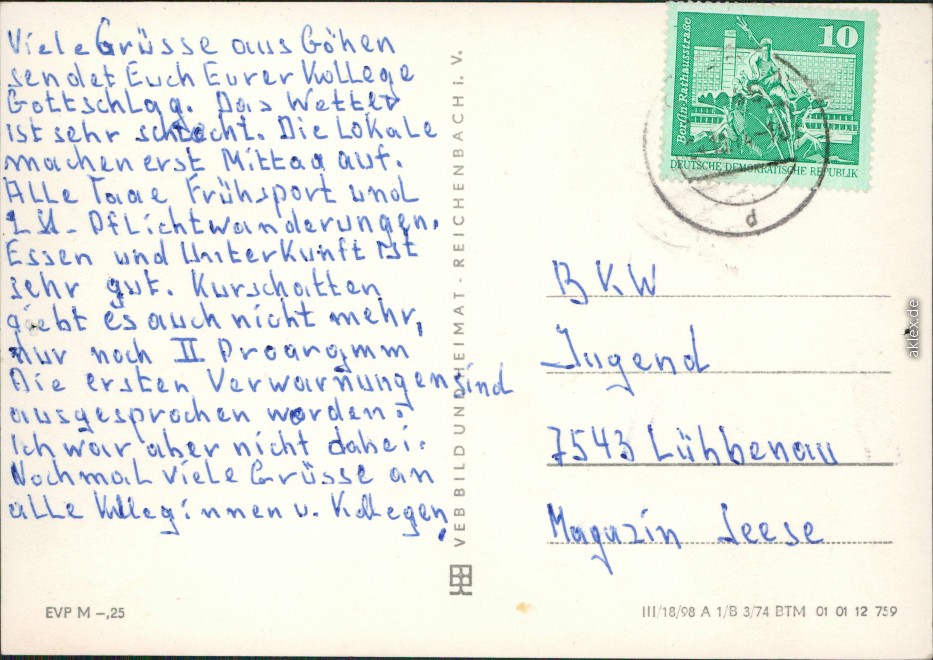 Viele Grüsse aus Göhen
sendet Euch Eurer Kollege
Gottschlag. Das Wetter
ist sehr schlecht. Die Lokale
machen erst Mittag auf.
Alle Tage Frühsport und
Pflichtwanderungen.
Essen und Unterkunft ist
sehr gut. Kurschatten
giebt es auch nicht mehr,
nur noch II Programm
Die ersten Verwarnungen sind
ausgesprochen worden.
Ich war aber nicht dabei.
Nochmal viele Grüsse an
alle Kolleginnen u. Kollegen
VEB BILD UND HEIMAT - REICHENBACH I. V.
EVP M –,25
Berlin-Rathausstraße
10
DEUTSCHE DEMOKRATISCHE REPUBLIK
BKW
Jugend
7543 Lübbenau
Magazin Seese
III/18/98 A 1/B 3/74 BTM 01 01 12 759
aklex.de